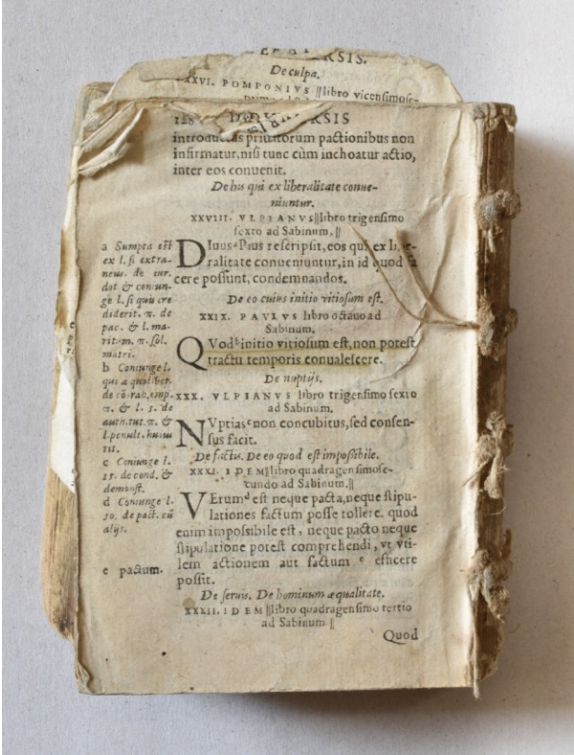 De culpa.
XXVI. POMPONIVS ||libro vicensimose-
introductas priuatorum pactionibus non
infirmatur, nisi tunc cùm inchoatur actio,
inter eos conuenit.
De his qui ex liberalitate conue-
niuntur.
XXVIII. VLPIANVS||libro trigensimo
sexto ad Sabinum.||
DIuus Pius rescripsit, eos qui ex li-
ralitate conueniuntur, in id quod fa
cere possunt, condemnandos.
De eo cuius initio vitiosum est.
XXIX. PAVLVS libro octauo ad
Sabinum.
QVod initio vitiosum est, non potest
tractu temporis conualescere.
De nuptijs.
XXX. VLPIANVS libro trigensimo sexto
ad Sabinum.
NVptias non concubitus, sed consen-
sus facit.
De factis. De eo quod est impossibile.
XXXI. IDEM||libro quadragensimose-
cundo ad Sabinum.||
VErum d est neque pacta, neque stipu-
lationes factum posse tollere. quod
enim impossibile est, neque pacto neque
stipulatione potest comprehendi, vt vti-
lem actionem aut factum e efficere
possit.
De seruis. De hominum æqualitate.
XXXII. IDEM||libro quadragensimo tertio
ad Sabinum||
Quod
a Sumpta est
ex l. si extra-
neus. de iur.
dot & coniun-
ge l. si quis cre
diderit. π. de
pac. & l. ma-
ritum. π. sol.
matri.
b Coniunge l.
que a qualiber.
π. & l. 5. de
auth. tut. π. &
l. penult. huius
tit.
c Coniunge l.
15. de cond. &
demonst.
d Coniunge l.
50. de pact. cū
alijs.
e pactum.